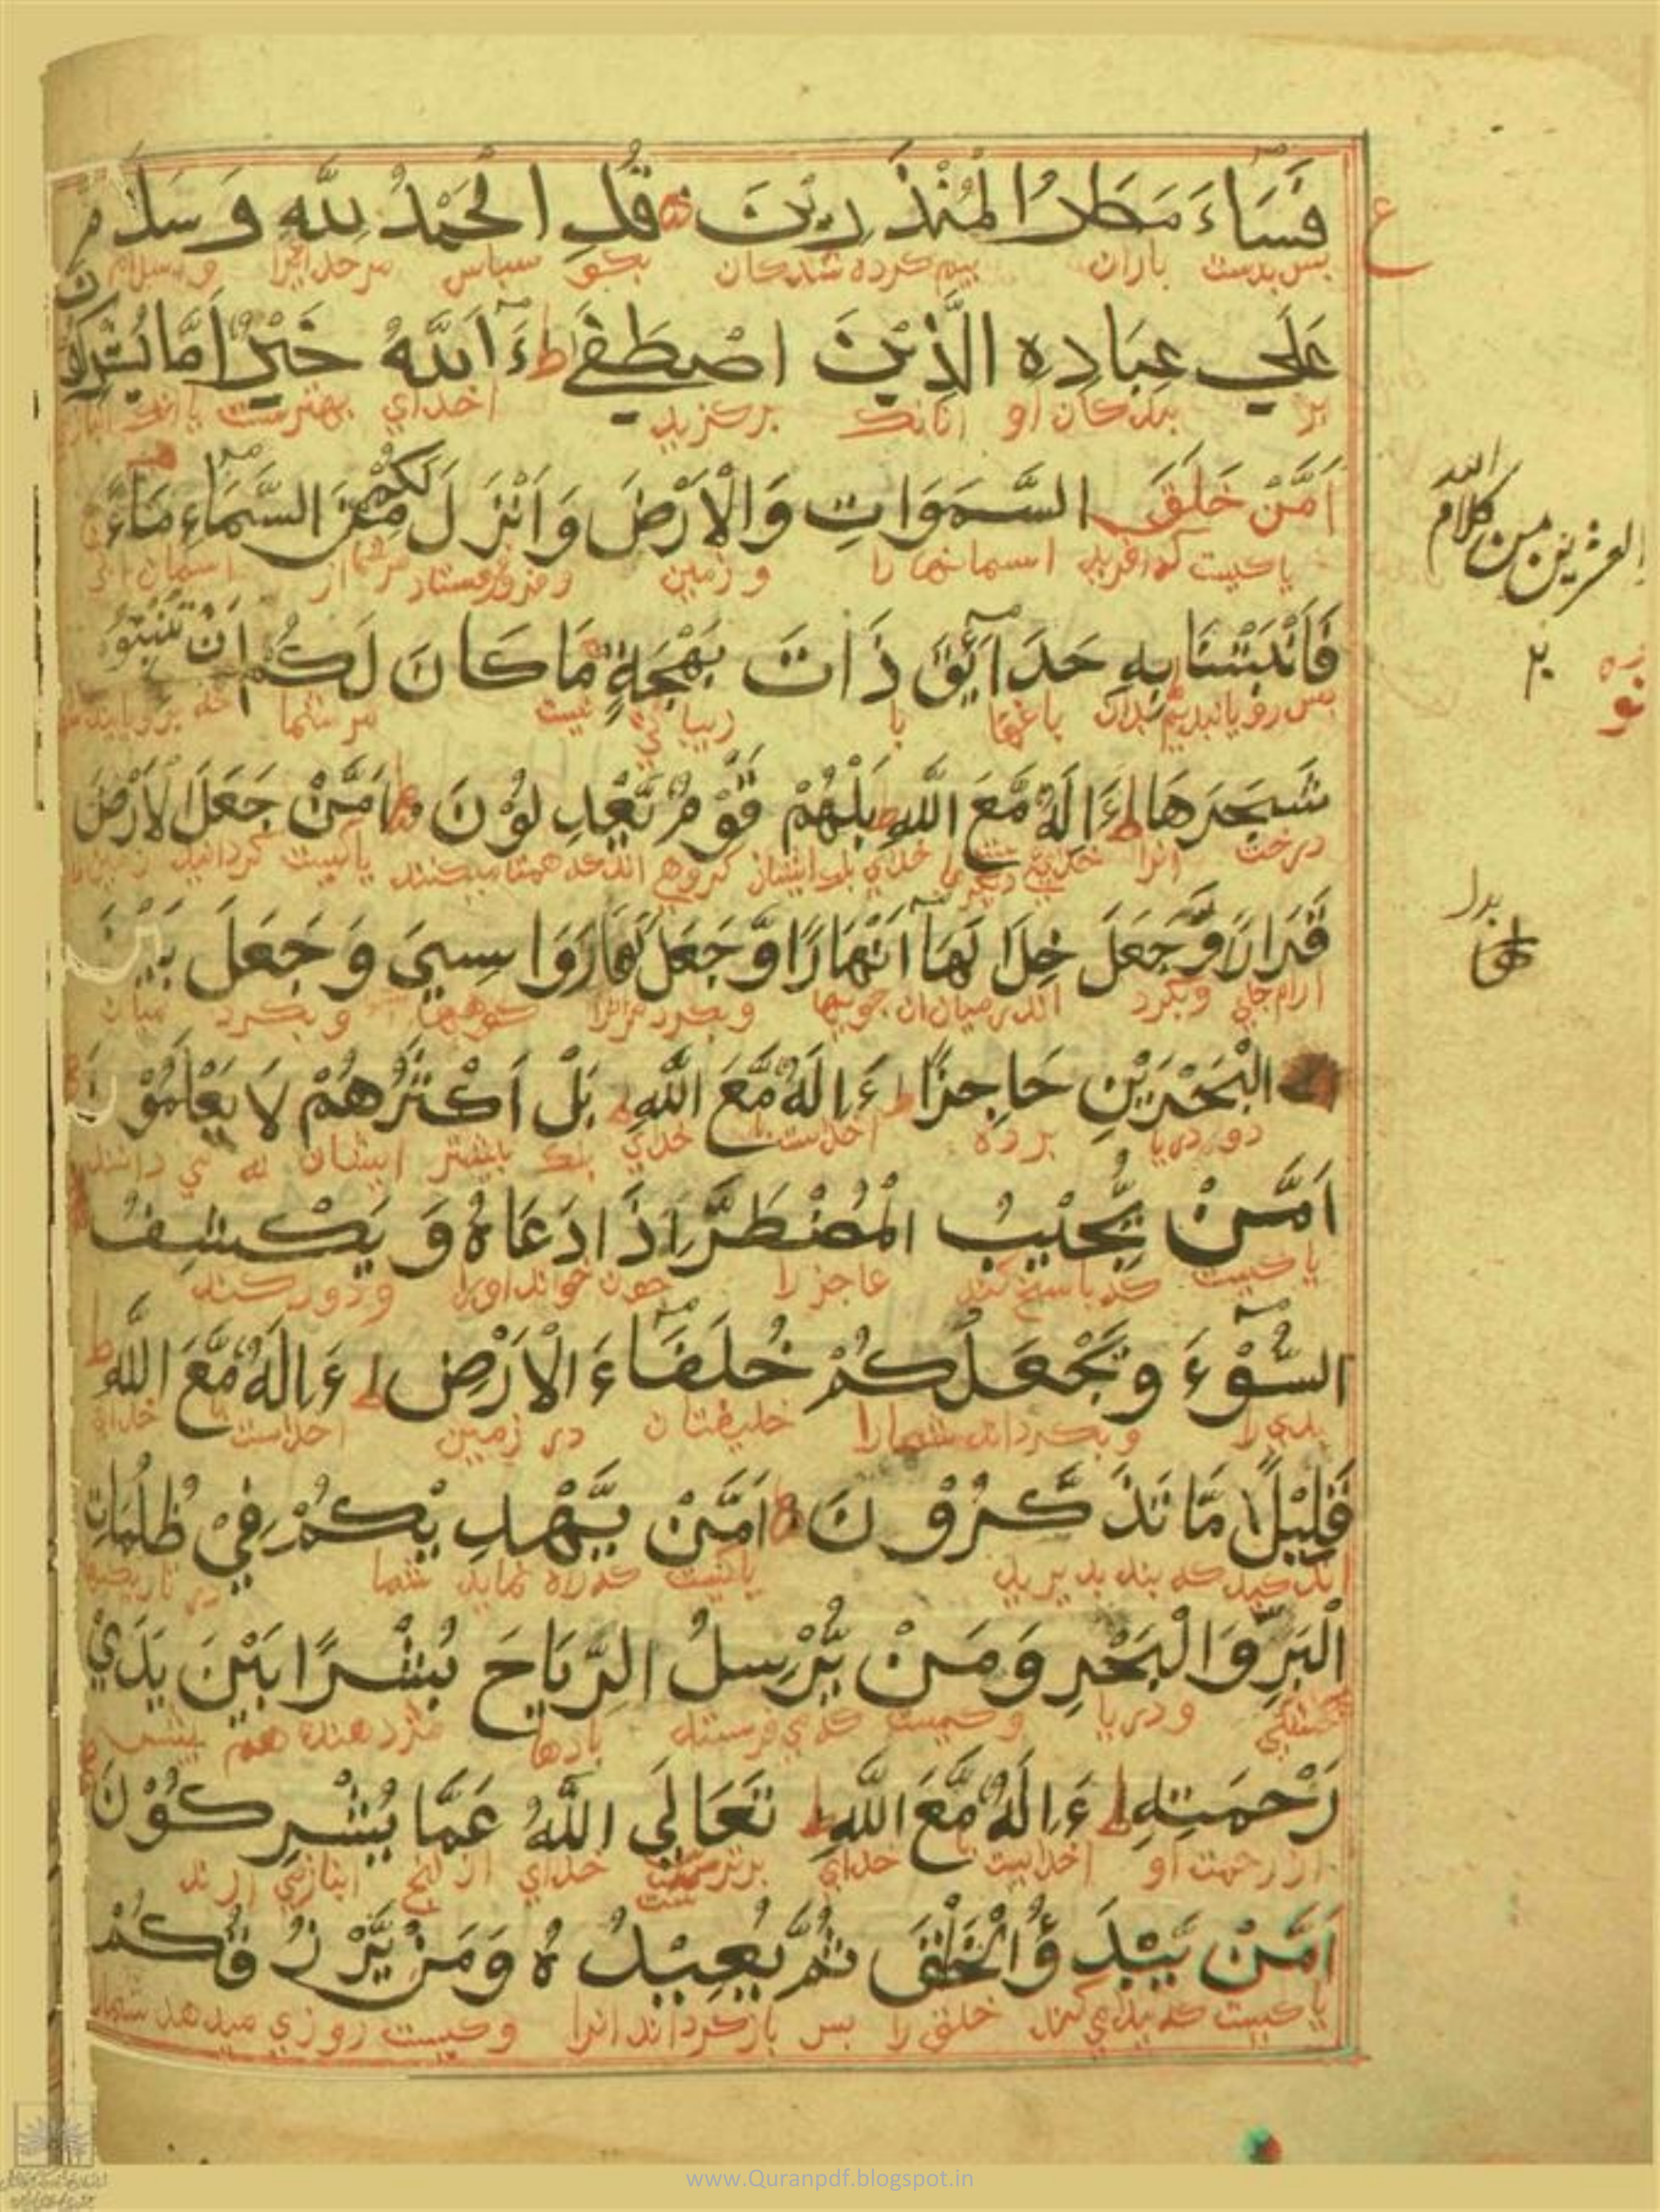 فَسَاءَ مَطَرُ الْمُنْذَرِيْنَ قُلِ الْحَمْدُ لِلّٰهِ وَسَلَامٌ
بس بدست باران بيم كرده شدكان بكو سباس مر خدايرا و سلام
عَلَي عِبَادِهِ الَّذِيْنَ اصْطَفَي ط ءَآللّٰهُ خَيْرٌ اَمَّا يُشْرِكُوْنَ
بر بندكان او انانك بركزيد اخداي بهترست يا انك
اَمَّنْ خَلَقَ السَّمَوَاتِ وَالْاَرْضَ وَاَنْزَلَ لَكُمْ مِّنَ السَّمَاءِ مَاءً
يا كيست كه افريد اسمانها را و زمين و فرو فرستاد مر شما از اسمان
فَاَنْبَتْنَا بِهِ حَدَآئِقَ ذَاتَ بَهْجَةٍ مَا كَانَ لَكُمْ اَنْ تُنْبِتُوْا
بس رويانيديم بدان باغها با زيبائي نيست مر شما
شَجَرَهَا ط ءَاِلَهٌ مَّعَ اللّٰهِ ط بَلْ هُمْ قَوْمٌ يَّعْدِلُوْنَ اَمَّنْ جَعَلَ الْاَرْضَ
درخت انرا خداي ديكر با خداي بلك ايشان كروهي اند كه همتا ميكنند يا كيست كردانيد زمين را
قَرَارًا وَّجَعَلَ خِلَالَهَآ اَنْهَارًا وَّجَعَلَ لَهَا رَوَاسِيَ وَجَعَلَ بَيْنَ
ارام جاي و بكرد اندر ميان ان جويها و بكرد مرانرا كوهها و بكرد ميان
الْبَحْرَيْنِ حَاجِزًا ط ءَاِلَهٌ مَّعَ اللّٰهِ ط بَلْ اَكْثَرُهُمْ لَا يَعْلَمُوْنَ
دو دريا برده اخداست با خداي بلك بيشتر ايشان نه مي دانند
اَمَّنْ يُّجِيْبُ الْمُضْطَرَّ اِذَا دَعَاهُ وَيَكْشِفُ
يا كيست كه باسخ كند عاجز را جون خواند اورا و دور كند
السُّوْءَ وَيَجْعَلُكُمْ خُلَفَآءَ الْاَرْضِ ط ءَاِلَهٌ مَّعَ اللّٰهِ ط
بدي را و بكرداند شما را خليفتان در زمين اخداست با خداي
قَلِيْلًا مَّا تَذَكَّرُوْنَ اَمَّنْ يَّهْدِيْكُمْ فِيْ ظُلُمَاتِ
اندكيد كه بند بذيريد يا كيست كه راه نمايد شما در تاريكيها
الْبَرِّ وَالْبَحْرِ وَمَنْ يُّرْسِلُ الرِّيَاحَ بُشْرًا بَيْنَ يَدَيْ
خشكي و دريا و كيست كه مي فرستد بادها مژده دهنده هم بيش
رَحْمَتِهِ ط ءَاِلَهٌ مَّعَ اللّٰهِ ط تَعَالَي اللّٰهُ عَمَّا يُشْرِكُوْنَ
از رحمت او اخدايست با خداي برترست خداي از انج انبازي ارند
اَمَّنْ يَّبْدَؤُا الْخَلْقَ ثُمَّ يُعِيْدُهُ وَمَنْ يَّرْزُقُكُمْ
يا كيست كه بيداي كند خلق را بس باز كرداند انرا و كيست روزي ميدهد شما را
ع
العشرين من كلام الله
٢٠
بدل
www.Quranpdf.blogspot.in